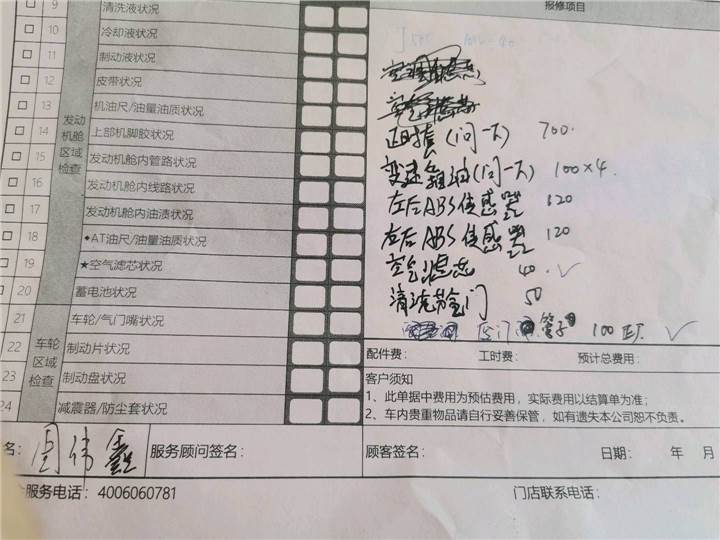 报修项目
9 清洗液状况
10 冷却液状况
11 制动液状况
12 皮带状况
13 机油尺/油量油质状况
14 上部机脚胶状况
15 发动机舱内管路状况
16 发动机舱内线路状况
17 发动机舱内油渍状况
18 ◆AT油尺/油量油质状况
19 ★空气滤芯状况
20 蓄电池状况
发动
机舱
区域
检查
21 车轮/气门嘴状况
22 制动片状况
23 制动盘状况
24 减震器/防尘套状况
车轮
区域
检查
正时套(问一下) 700.
变速箱油(问一下) 100×4.
左后ABS传感器 120
左后ABS传感器 120
空气滤芯 40 ✓
清洗节气门 50
管子 100 ✓
配件费: 工时费: 预计总费用:
客户须知
1、此单据中费用为预估费用，实际费用以结算单为准;
2、车内贵重物品请自行妥善保管，如有遗失本公司恕不负责。
名: 周伟鑫 服务顾问签名: 顾客签名: 日期: 年 月
服务电话: 4006060781 门店联系电话: